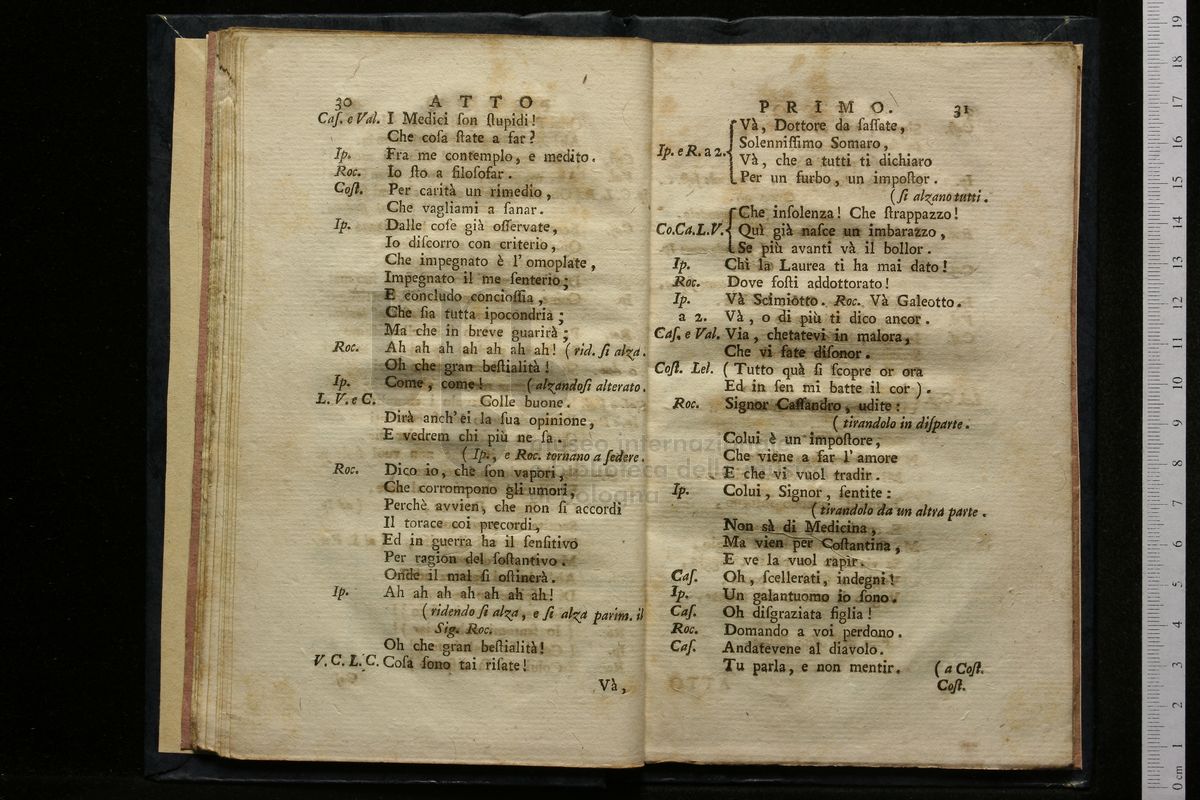 30 ATTO
Caſ. e Val. I Medici ſon ſtupidi!
Che coſa ſtate a far?
Ip. Fra me contemplo, e medito.
Roc. Io ſto a filoſofar.
Coſt. Per carità un rimedio,
Che vagliami a ſanar.
Ip. Dalle coſe già oſſervate,
Io diſcorro con criterio,
Che impegnato è l'omoplate,
Impegnato il me ſenterio;
E concludo concioſſia,
Che ſia tutta ipocondria;
Ma che in breve guarirà;
Roc. Ah ah ah ah ah ah ah! (rid. ſi alza.
Oh che gran beſtialità!
Ip. Come, come! (alzandoſi alterato.
L. V. e C. Colle buone.
Dirà anch'ei la ſua opinione,
E vedrem chi più ne ſa.
(Ip., e Roc. tornano a ſedere.
Roc. Dico io, che ſon vapori,
Che corrompono gli umori,
Perchè avvien, che non ſi accordi
Il torace coi precordi,
Ed in guerra ha il ſenſitivo
Per ragion del ſoſtantivo.
Onde il mal ſi oſtinerà.
Ip. Ah ah ah ah ah ah ah!
(ridendo ſi alza, e ſi alza parim. il
Sig. Roc.
Oh che gran beſtialità!
V. C. L. C. Coſa ſono tai riſate!
Và,
PRIMO. 31
Ip. e R. a 2. Và, Dottore da ſaſſate,
Solenniſſimo Somaro,
Và, che a tutti ti dichiaro
Per un furbo, un impoſtor.
(ſi alzano tutti.
Co.Ca.L.V. Che inſolenza! Che ſtrappazzo!
Quì già naſce un imbarazzo,
Se più avanti và il bollor.
Ip. Chi la Laurea ti ha mai dato!
Roc. Dove foſti addottorato!
Ip. Và Scimiotto. Roc. Và Galeotto.
a 2. Và, o di più ti dico ancor.
Caſ. e Val. Via, chetatevi in malora,
Che vi fate diſonor.
Coſt. Lel. (Tutto quà ſi ſcopre or ora
Ed in ſen mi batte il cor).
Roc. Signor Caſſandro, udite:
(tirandolo in diſparte.
Colui è un impoſtore,
Che viene a far l'amore
E che vi vuol tradir.
Ip. Colui, Signor, ſentite:
(tirandolo da un altra parte.
Non sà di Medicina,
Ma vien per Coſtantina,
E ve la vuol rapir.
Caſ. Oh, ſcellerati, indegni!
Ip. Un galantuomo io ſono.
Caſ. Oh diſgraziata figlia!
Roc. Domando a voi perdono.
Caſ. Andatevene al diavolo.
Tu parla, e non mentir. (a Coſt.
Coſt.